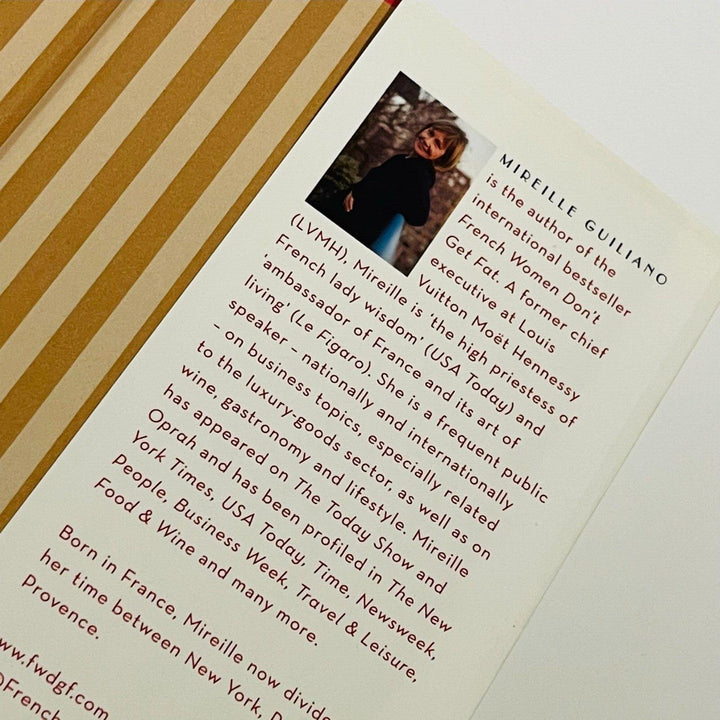 MIREILLE GUILIANO
is the author of the
international bestseller
French Women Don't
Get Fat. A former chief
executive at Louis
Vuitton Moët Hennessy
(LVMH), Mireille is 'the high priestess of
French lady wisdom' (USA Today) and
'ambassador of France and its art of
living' (Le Figaro). She is a frequent public
speaker – nationally and internationally
– on business topics, especially related
to the luxury-goods sector, as well as on
wine, gastronomy and lifestyle. Mireille
has appeared on The Today Show and
Oprah and has been profiled in The New
York Times, USA Today, Time, Newsweek,
People, Business Week, Travel & Leisure,
Food & Wine and many more.
Born in France, Mireille now divide
her time between New York,
Provence.
www.fwdgf.com
@French